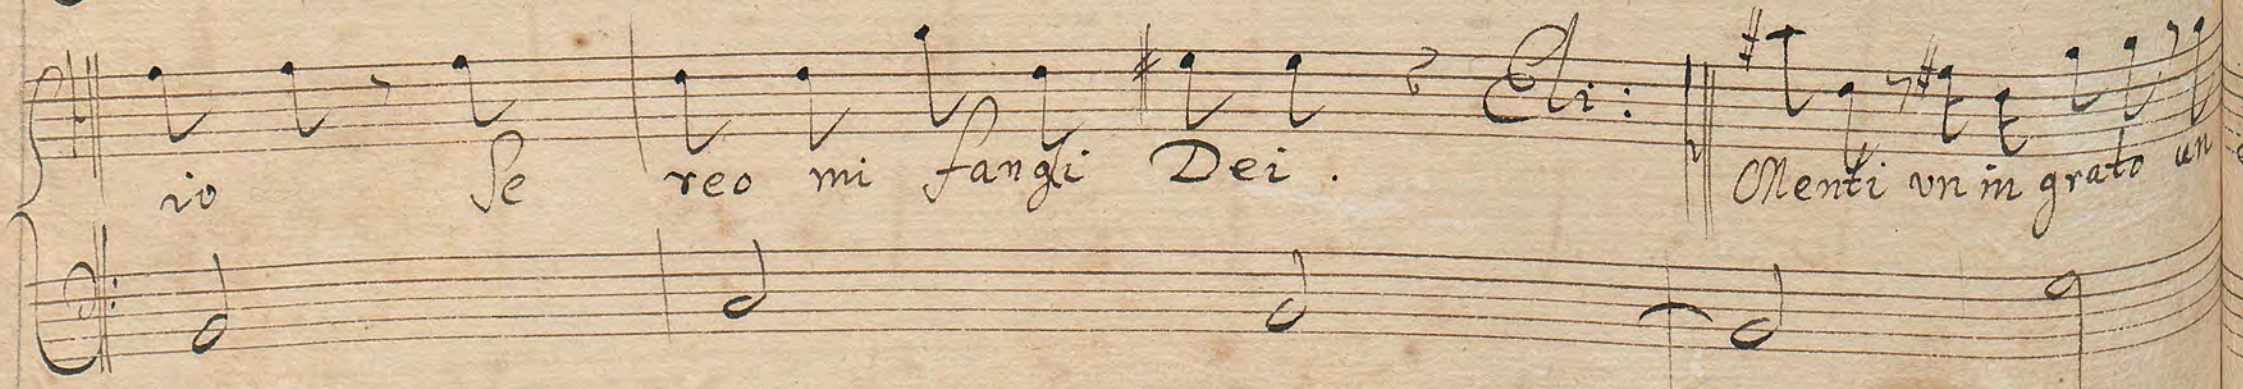 io Se reo mi fangli Dei. Eli: Menti vn in grato un